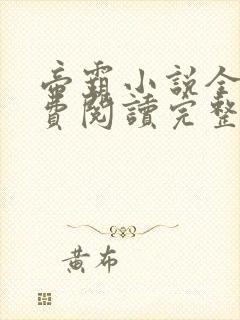 帝霸小說全
費閱讀完整
黃布